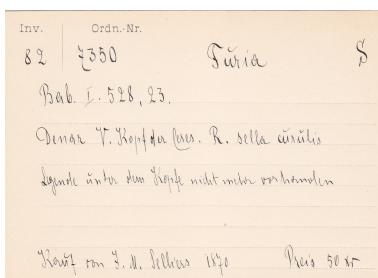 Inv. Ordn.-Nr.
82 7350 Furia S
Bab. I. 528, 23.
Denar V. Kopf der Ceres. R. sella curulis
Legende unter dem Kopfe nicht mehr vorhanden
Kauf von J. M. Selliers 1870 Preis 50 xr